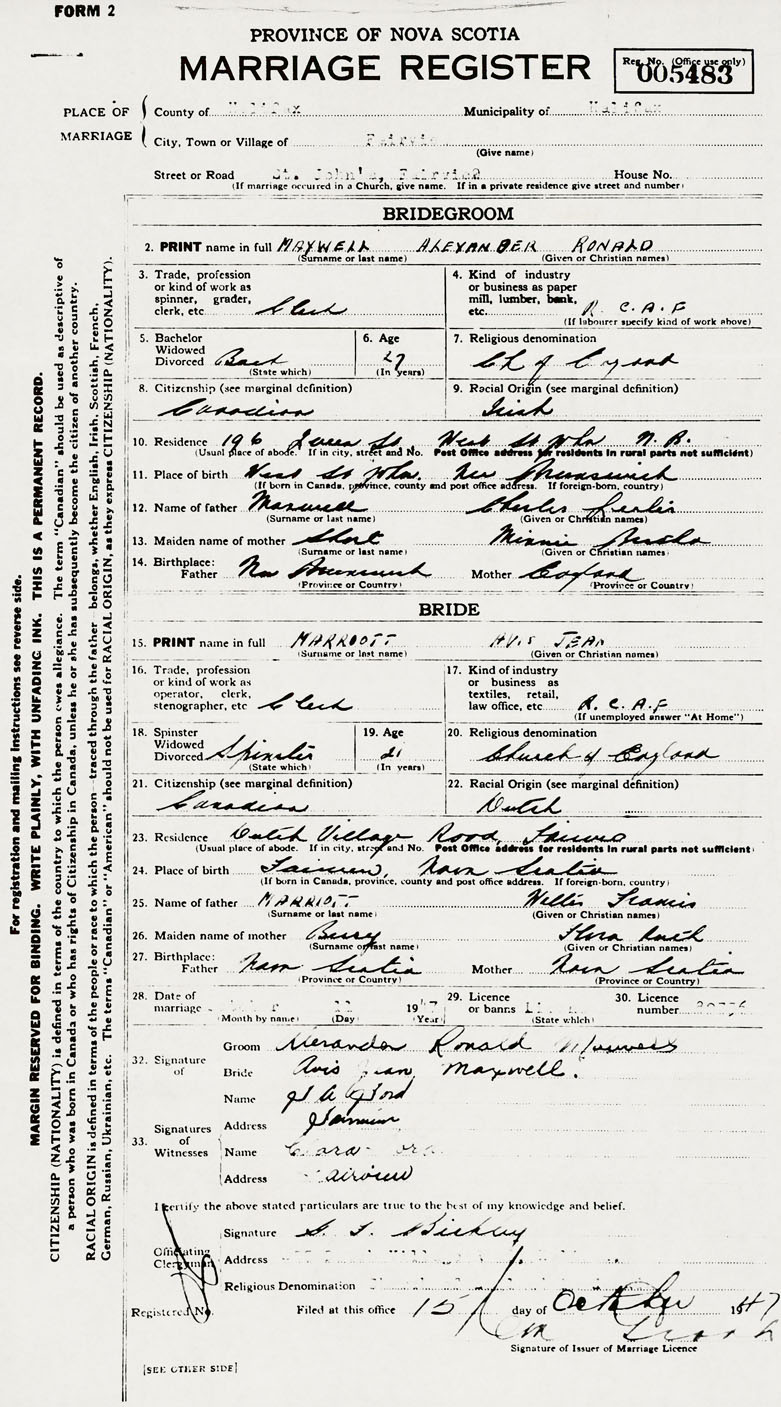 FORM 2
PROVINCE OF NOVA SCOTIA
MARRIAGE REGISTER
Reg. No. (Office use only)
005483
PLACE OF MARRIAGE
County of Halifax Municipality of Halifax
City, Town or Village of
(Give name)
Street or Road St. John's, House No.
(If marriage occurred in a Church, give name. If in a private residence give street and number)
BRIDEGROOM
2. PRINT name in full MAXWELL ALEXANDER RONALD
(Surname or last name) (Given or Christian names)
3. Trade, profession or kind of work as spinner, grader, clerk, etc. Clerk
4. Kind of industry or business as paper mill, lumber, bank, etc. R.C.A.F
(If labourer specify kind of work above)
5. Bachelor Widowed Divorced Bach
(State which)
6. Age 27
(In years)
7. Religious denomination
Ch of England
8. Citizenship (see marginal definition)
Canadian
9. Racial Origin (see marginal definition)
Irish
10. Residence 196 Queen St West St John N.B.
(Usual place of abode. If in city, street and No. Post Office address for residents in rural parts not sufficient)
11. Place of birth West St John. New Brunswick
(If born in Canada, province, county and post office address. If foreign-born, country)
12. Name of father Maxwell Charles Leslie
(Surname or last name) (Given or Christian names)
13. Maiden name of mother Short Minnie
(Surname or last name) (Given or Christian names)
14. Birthplace: Father New Brunswick Mother England
(Province or Country) (Province or Country)
BRIDE
15. PRINT name in full MARRIOTT AVIS JEAN
(Surname or last name) (Given or Christian names)
16. Trade, profession or kind of work as operator, clerk, stenographer, etc Clerk
17. Kind of industry or business as textiles, retail, law office, etc. R.C.A.F
(If unemployed answer "At Home")
18. Spinster Widowed Divorced Spinster
(State which)
19. Age 21
(In years)
20. Religious denomination
Church of England
21. Citizenship (see marginal definition)
Canadian
22. Racial Origin (see marginal definition)
Dutch
23. Residence Dutch Village Road, Fairview
(Usual place of abode. If in city, street and No. Post Office address for residents in rural parts not sufficient)
24. Place of birth Fairview, Nova Scotia
(If born in Canada, province, county and post office address. If foreign-born, country)
25. Name of father MARRIOTT Willis Francis
(Surname or last name) (Given or Christian names)
26. Maiden name of mother Berry Flora Ruth
(Surname or last name) (Given or Christian names)
27. Birthplace: Father Nova Scotia Mother Nova Scotia
(Province or Country) (Province or Country)
28. Date of marriage 1947
(Month by name) (Day) (Year)
29. Licence or banns
(State which)
30. Licence number
32. Signature of
Groom Alexander Ronald Maxwell
Bride Avis Jean Maxwell.
33. Signatures of Witnesses
Name
Address Fairview
Name Clara
Address Fairview
I certify the above stated particulars are true to the best of my knowledge and belief.
Officiating Clergyman
Signature
Address
Religious Denomination
Registered No. Filed at this office 15 day of October 1947
Signature of Issuer of Marriage Licence
[SEE OTHER SIDE]
For registration and mailing instructions see reverse side.
MARGIN RESERVED FOR BINDING. WRITE PLAINLY, WITH UNFADING INK. THIS IS A PERMANENT RECORD.
CITIZENSHIP (NATIONALITY) is defined in terms of the country to which the person owes allegiance. The term "Canadian" should be used as descriptive of
a person who was born in Canada or who has rights of Citizenship in Canada, unless he or she has subsequently become the citizen of another country.
RACIAL ORIGIN is defined in terms of the people or race to which the person traced through the father belongs, whether English, Irish, Scottish, French,
German, Russian, Ukrainian, etc. The terms "Canadian" or "American" should not be used for RACIAL ORIGIN, as they express CITIZENSHIP (NATIONALITY).